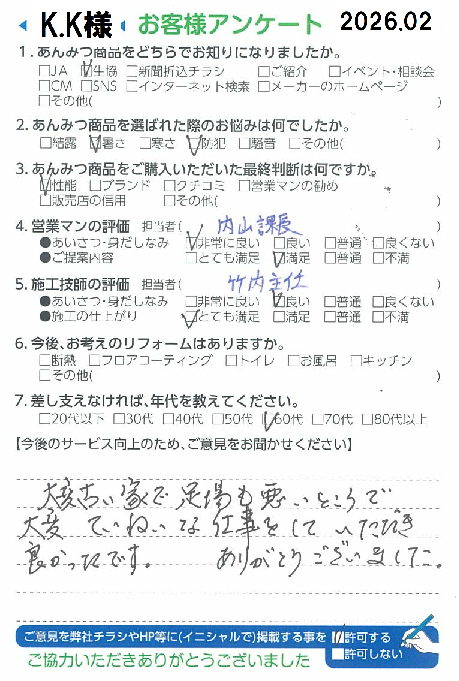 K.K様 お客様アンケート 2026.02
1.あんみつ商品をどちらでお知りになりましたか。
□JA ☑生協 □新聞折込チラシ □ご紹介 □イベント・相談会
□CM □SNS □インターネット検索 □メーカーのホームページ
□その他( )
2.あんみつ商品を選ばれた際のお悩みは何でしたか。
□結露 ☑暑さ □寒さ ☑防犯 □騒音 □その他( )
3.あんみつ商品をご購入いただいた最終判断は何ですか。
☑性能 □ブランド □クチコミ □営業マンの勧め
□販売店の信用 □その他( )
4.営業マンの評価 担当者( 内山課長 )
●あいさつ・身だしなみ ☑非常に良い □良い □普通 □良くない
●ご提案内容 □とても満足 ☑満足 □普通 □不満
5.施工技師の評価 担当者( 竹内主任 )
●あいさつ・身だしなみ □非常に良い ☑良い □普通 □良くない
●施工の仕上がり ☑とても満足 □満足 □普通 □不満
6.今後、お考えのリフォームはありますか。
□断熱 □フロアコーティング □トイレ □お風呂 □キッチン
□その他( )
7.差し支えなければ、年代を教えてください。
□20代以下 □30代 □40代 □50代 ☑60代 □70代 □80代以上
【今後のサービス向上のため、ご意見をお聞かせください】
大変古い家で足場も悪いところで
大変ていねいな仕事をしていただき
良かったです。 ありがとうございました。
ご意見を弊社チラシやHP等に(イニシャルで)掲載する事を ☑許可する
□許可しない
ご協力いただきありがとうございました